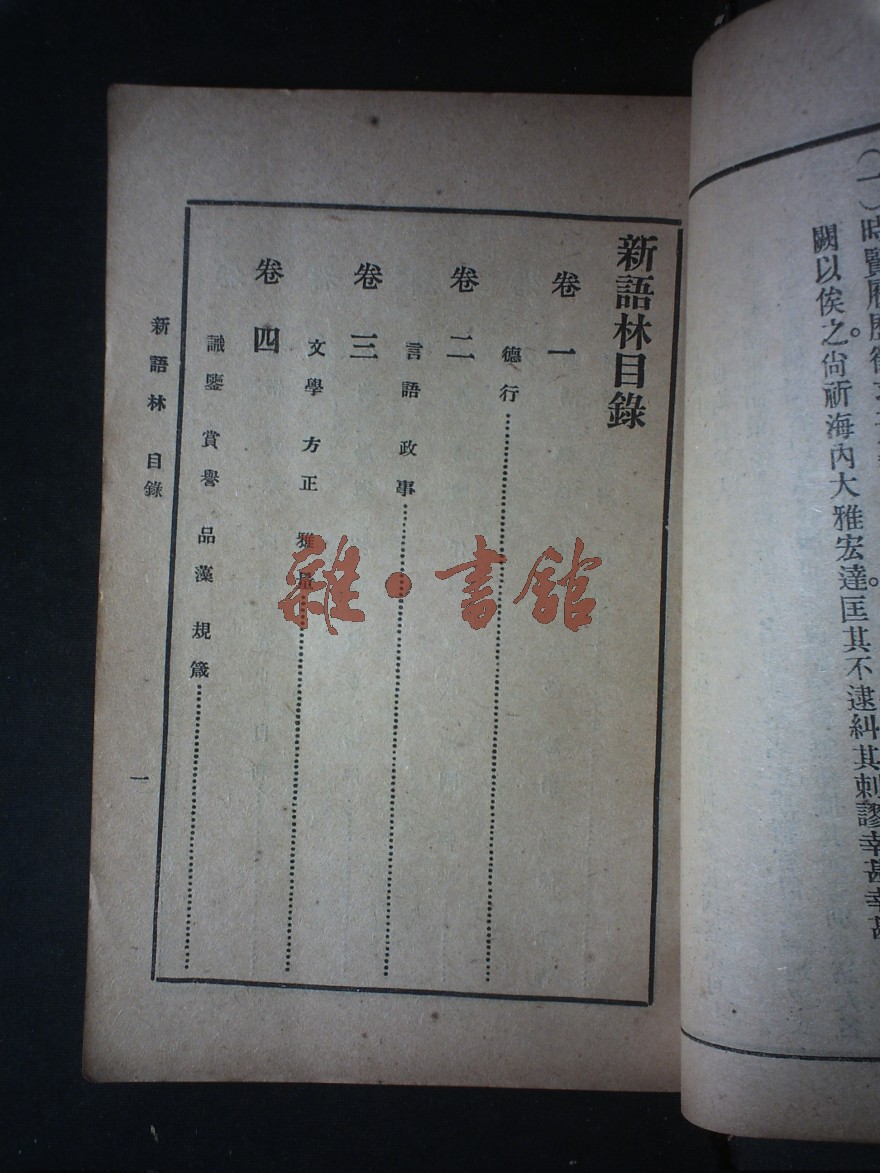 (一)時賢
闕以俟之。尙祈海內大雅宏達。匡其不逮糾其剌謬幸甚幸甚
新語林目錄
卷一
德行
卷二
言語 政事
卷三
文學 方正 雅量
卷四
識鑒 賞譽 品藻 規箴
新語林 目錄
一
雜·書館